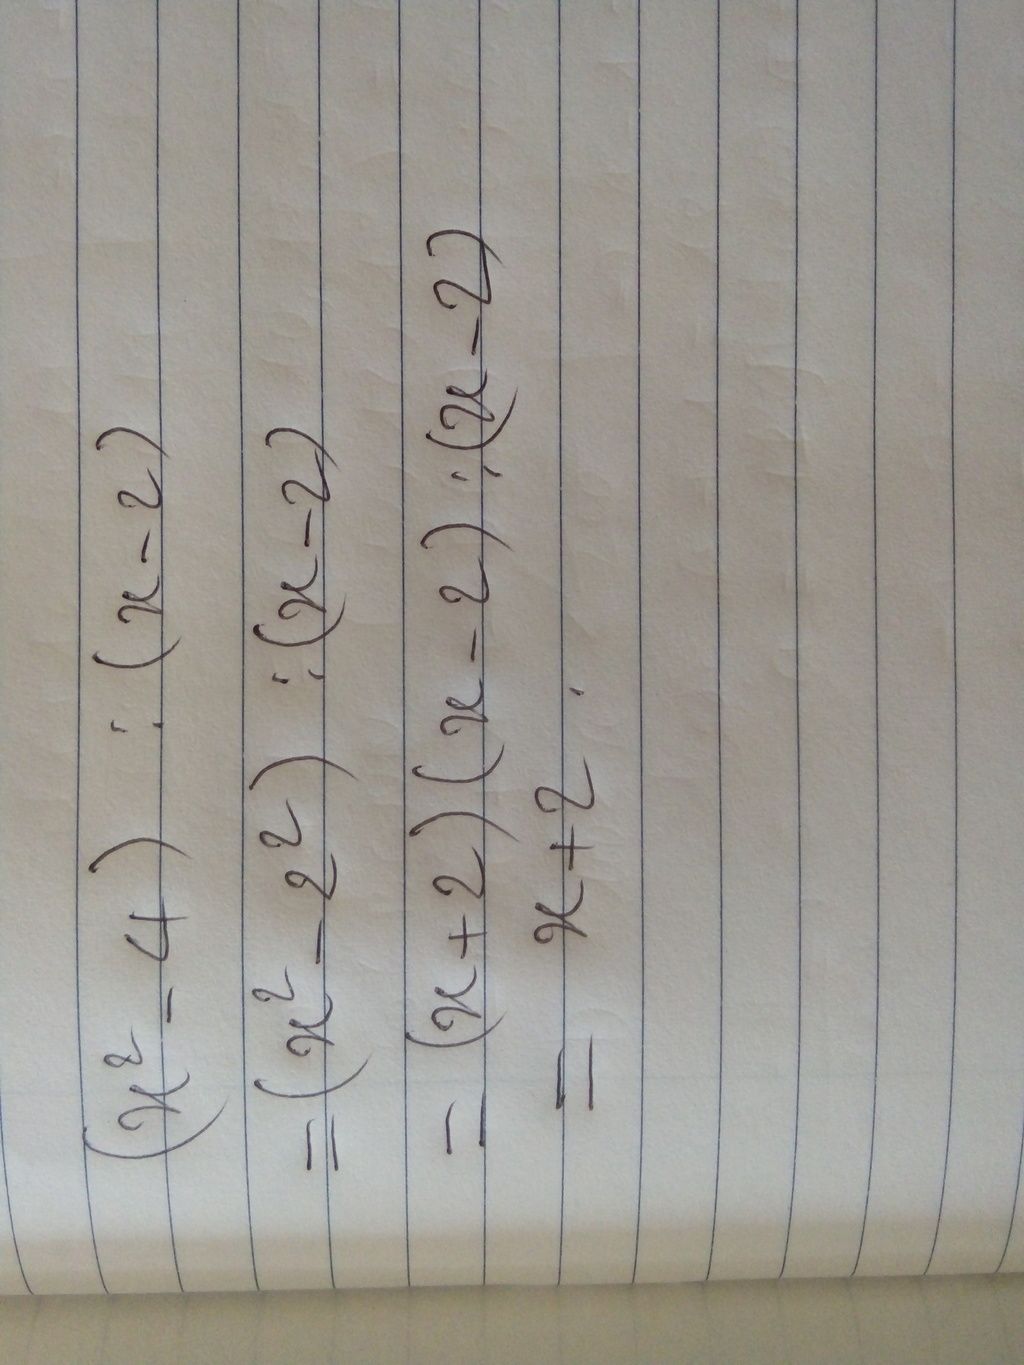 (x² - 4) : (x - 2)
= (x² - 2²) : (x - 2)
= (x + 2)(x - 2) : (x - 2)
= x + 2.